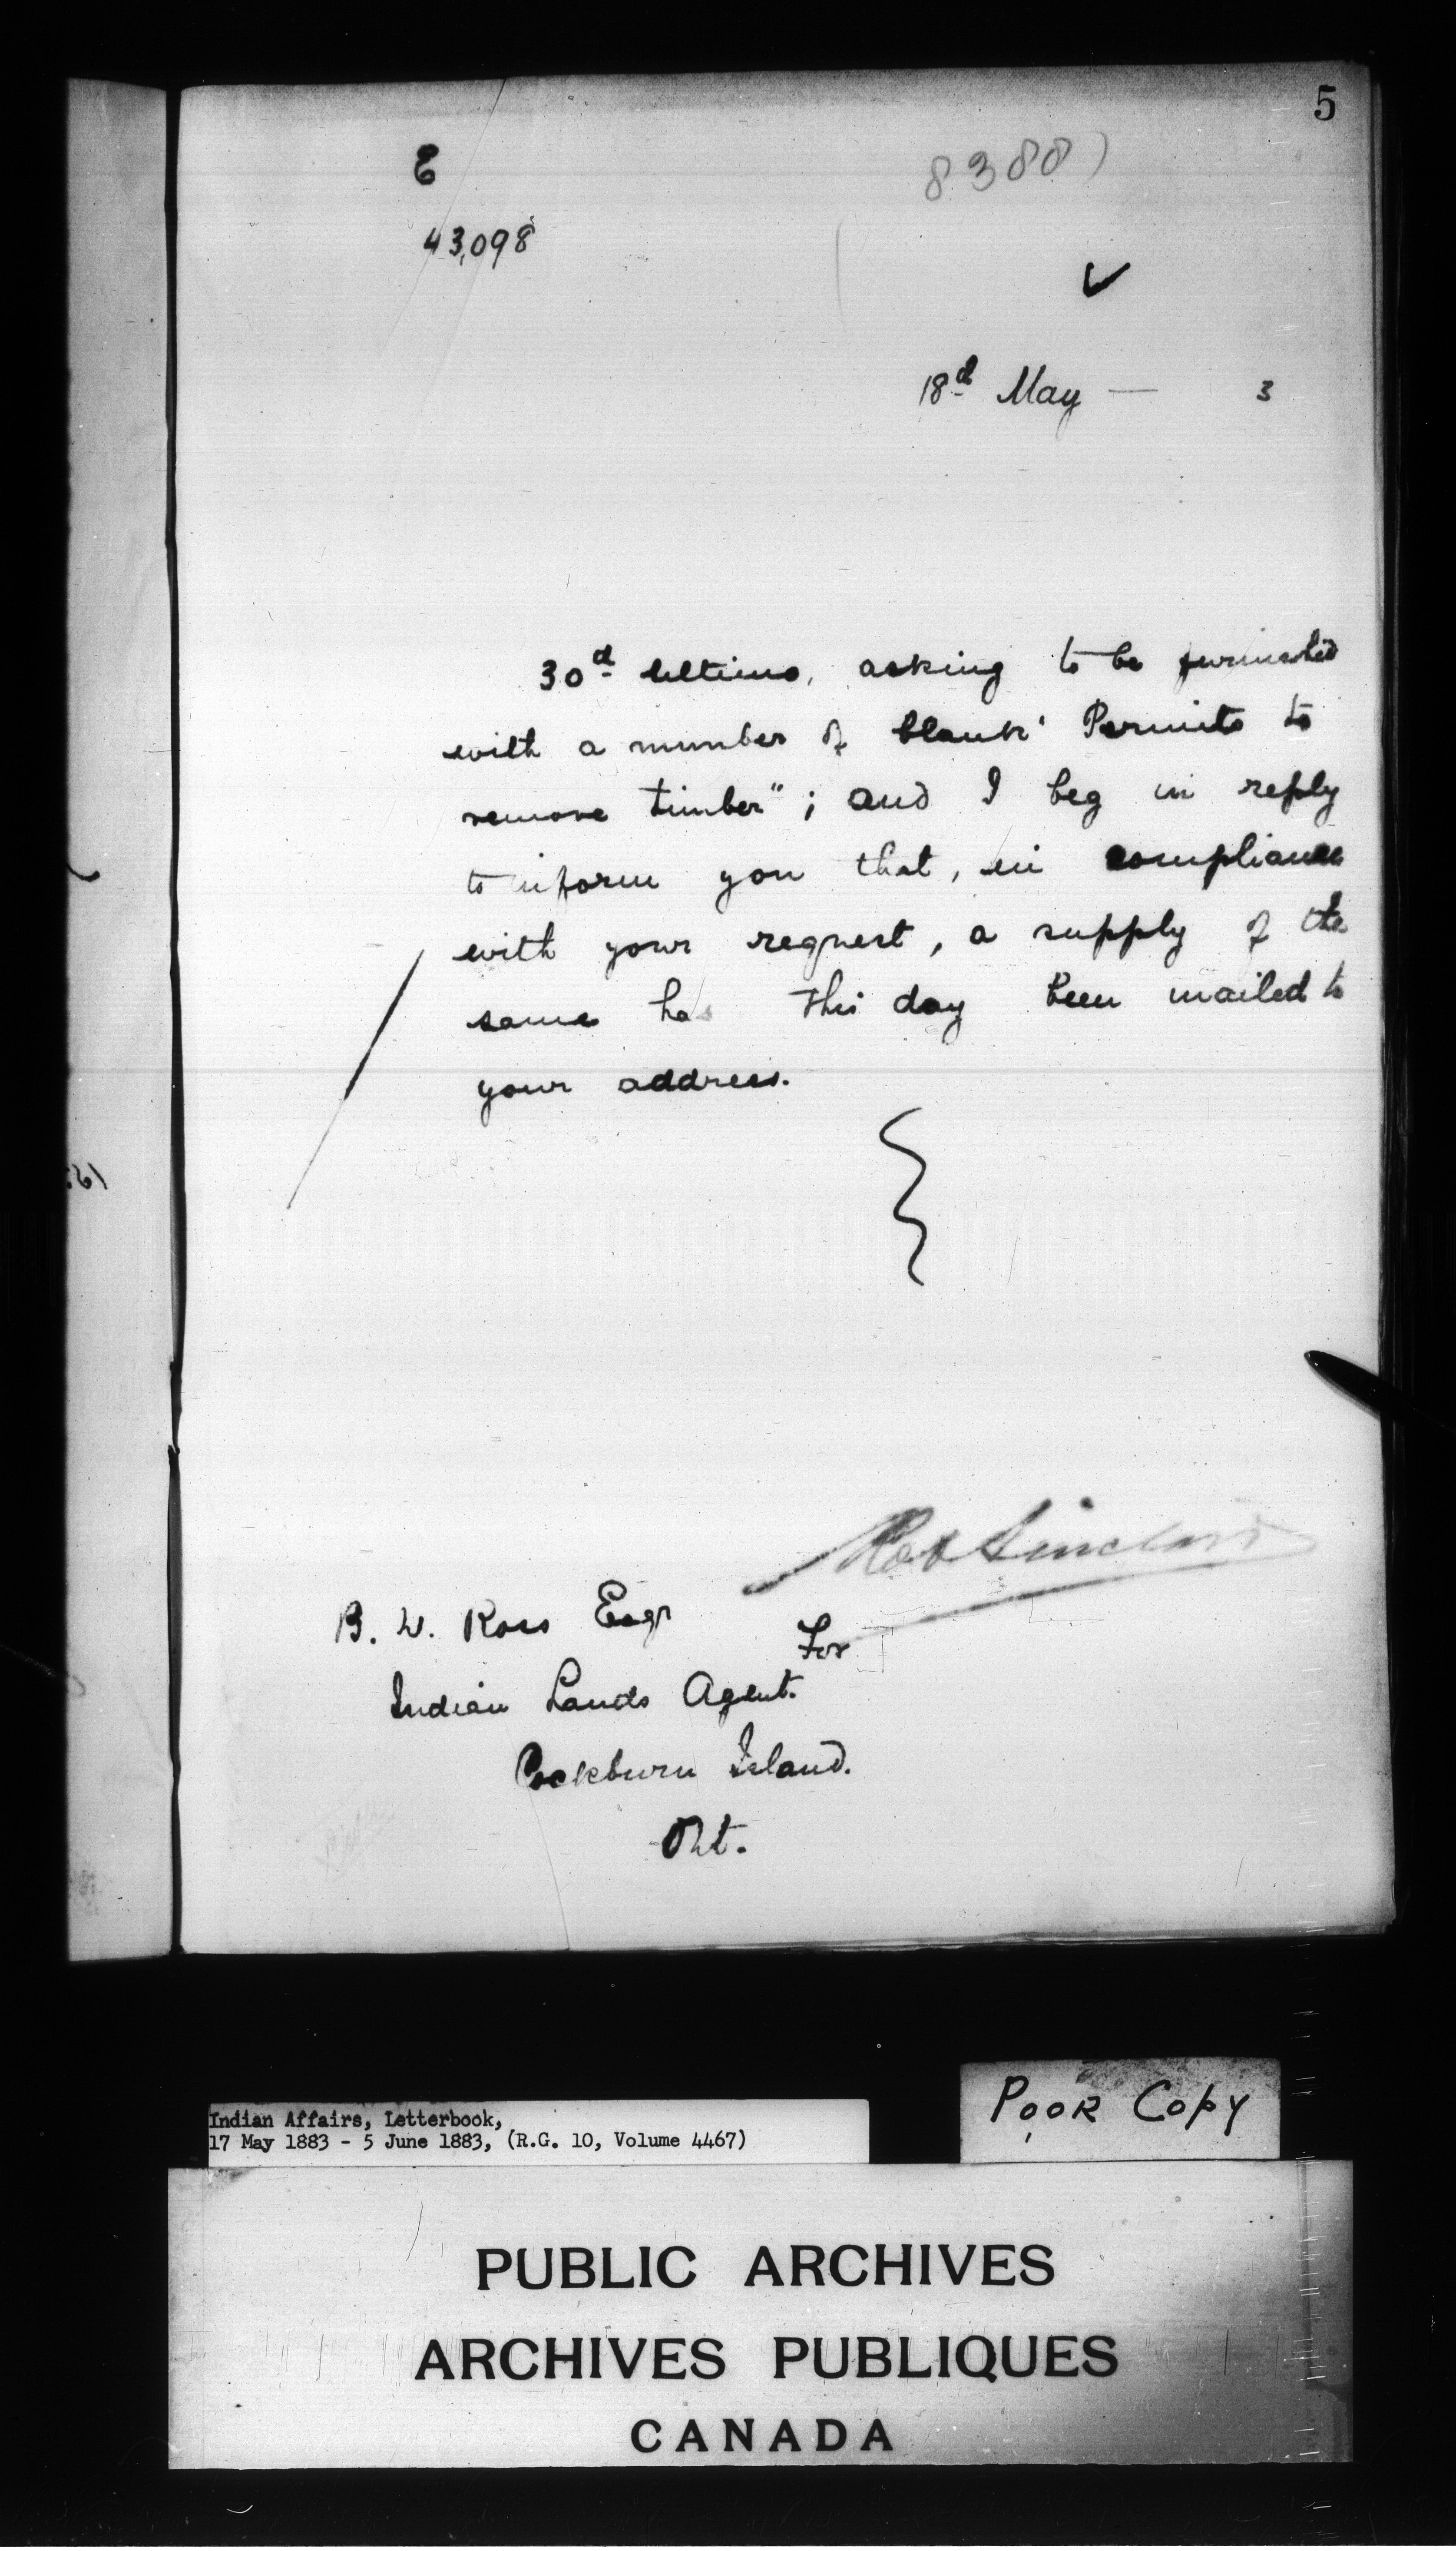 5
E
8388)
43,098
18th May — 3
30th ultimo, asking to be furnished
with a number of blank "Permits to
remove timber"; and I beg in reply
to inform you that, in compliance
with your request, a supply of the
same has this day been mailed to
your address.
Rob Sinclair
B. W. Ross Esqr
For
Indian Lands Agent.
Cockburn Island.
Ont.
Indian Affairs, Letterbook,
17 May 1883 - 5 June 1883, (R.G. 10, Volume 4467)
Poor Copy
PUBLIC ARCHIVES
ARCHIVES PUBLIQUES
CANADA